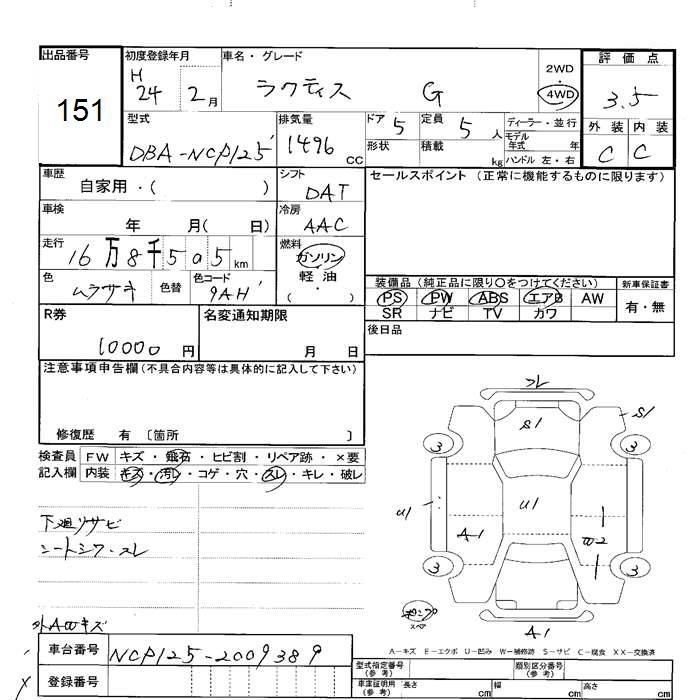 出品番号 初度登録年月 車名・グレード 評価点
151 H 24 2月 ラクティス G 2WD 4WD 3.5
型式 排気量 ドア 5 定員 5人 ディーラー・並行 外装 内装
DBA-NCP125 1496 CC 形状 積載 kg モデル年式 年 ハンドル 左・右 C C
車歴 自家用・( ) シフト DAT セールスポイント (正常に機能するものに限ります)
車検 年 月( 日) 冷房 AAC
走行 16万8千505km 燃料 ガソリン・軽油・( )
色 ムラサキ 色替 色コード 9AH
装備品 (純正品に限り○をつけてください) 新車保証書
PS PW ABS エアB AW 有・無
SR ナビ TV カワ
R券 10000円 名変通知期限 月 日 後日品
注意事項申告欄(不具合内容等は具体的に記入して下さい)
修復歴 有 〔箇所 〕
検査員 FW キズ・飛石・ヒビ割・リペア跡・×要
記入欄 内装 キズ・汚レ・コゲ・穴・スレ・キレ・破レ
下廻りサビ
シートシワ・スレ
外AWキズ
スレ
S1 S1
3 3
U1 U1
A1 W2
3 3
スペア
A1
A-キズ E-エクボ U-凹み W-補修跡 S-サビ C-腐食 XX-交換済
車台番号 NCP125-2009389
登録番号
型式指定番号(参考) 類別区分番号(参考)
車庫証明用(参考) 長さ cm 幅 cm 高さ cm